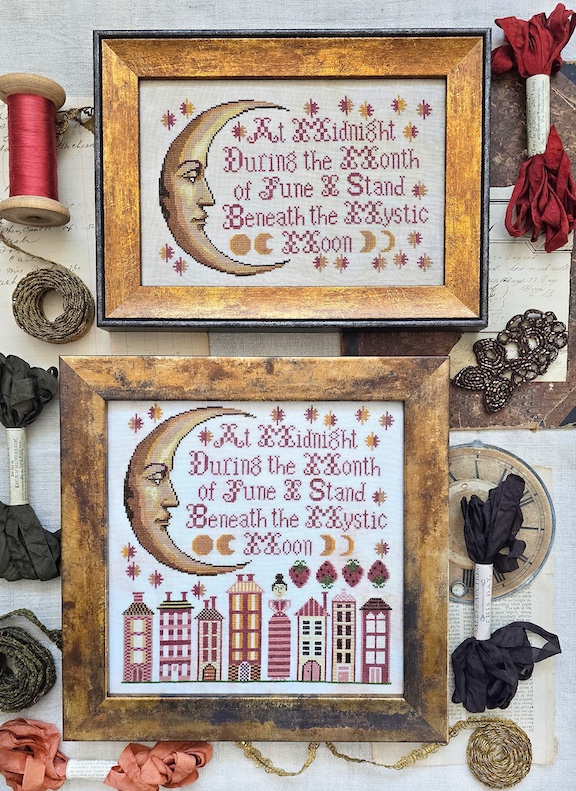 At Midnight
During the Month
of June I Stand
Beneath the Mystic
Moon
At Midnight
During the Month
of June I Stand
Beneath the Mystic
Moon